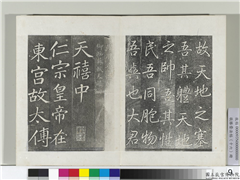 故天地之塞
吾其體天地
之帥吾其性
民吾同胞物
吾與也大君
天禧中
仁宗皇帝在
東宮故太傅